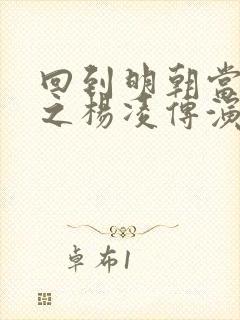 回到明朝當
之楊凌傳演
卓布1